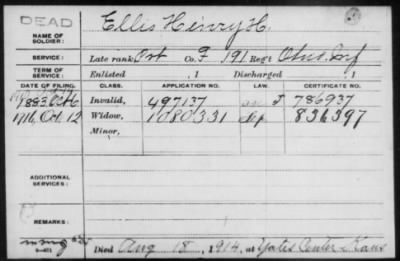 DEAD
Ellis Henry H.
NAME OF
SOLDIER:
SERVICE: Late rank, Pvt Co. F 191 Reg't Ohio Inf
TERM OF
SERVICE: Enlisted , 1 Discharged , 1
DATE OF FILING. CLASS. APPLICATION NO. LAW. CERTIFICATE NO.
1883 Oct 6 Invalid, 497137 J 786937
1916, Oct. 12 Widow, 1080331 836397
Minor,
ADDITIONAL
SERVICES:
REMARKS:
Died Aug 18, 1914, at Yates Center Kans